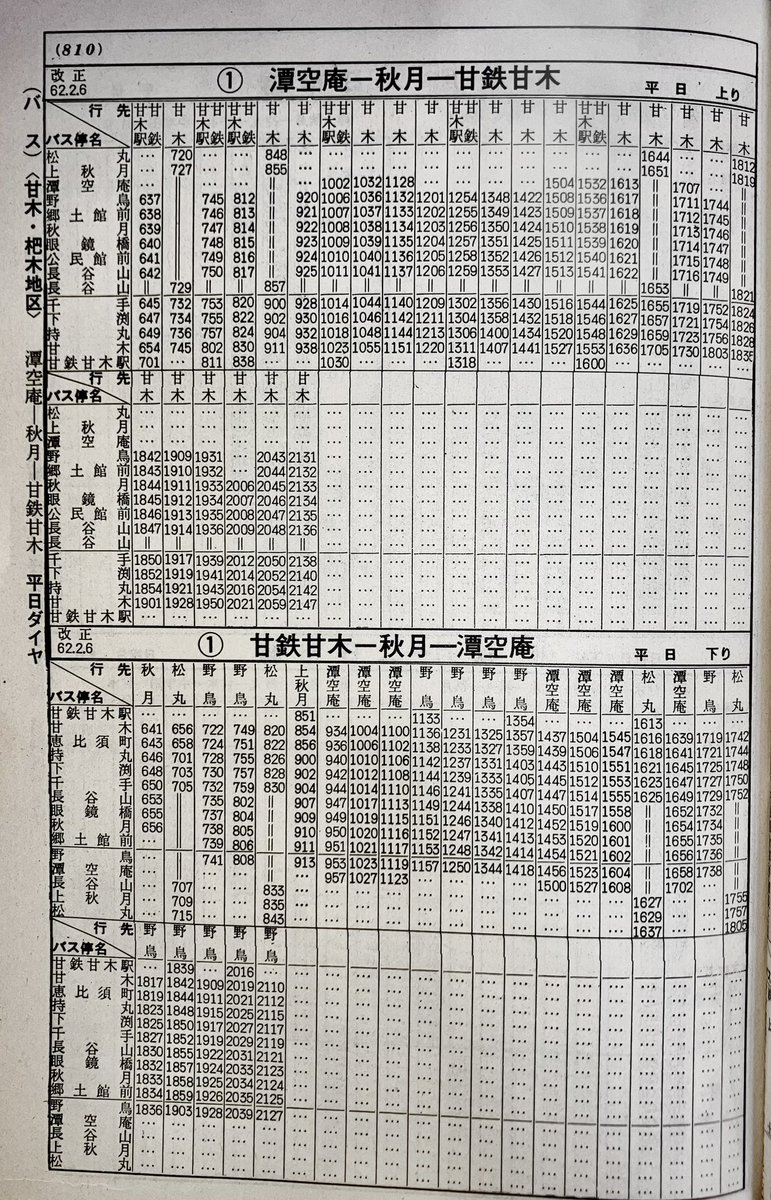 (810)
(バス)〈甘木・杷木地区〉 潭空庵―秋月―甘鉄甘木 平日ダイヤ
改正 62.2.6 ① 潭空庵―秋月―甘鉄甘木 平日 上り
行先 甘鉄甘木駅 甘木 甘鉄甘木駅 甘鉄甘木駅 甘木 甘木 甘鉄甘木駅 甘木 甘木 甘木 甘鉄甘木駅 甘木 甘木 甘木 甘鉄甘木駅 甘木 甘木 甘木 甘木 甘木
バス停名
松丸 … 720 … … 848 … … … … … … … … … … … 1644 … … 1812
上秋月 … 727 … … 855 … … … … … … … … … … … 1651 … … 1819
潭空庵 … ‖ … … ‖ … 1002 1032 1128 … … … … 1504 1532 1613 ‖ 1707 … ‖
野鳥 637 ‖ 745 812 ‖ 920 1006 1036 1132 1201 1254 1348 1422 1508 1536 1617 ‖ 1711 1744 ‖
郷土館前 638 ‖ 746 813 ‖ 921 1007 1037 1133 1202 1255 1349 1423 1509 1537 1618 ‖ 1712 1745 ‖
秋月 639 ‖ 747 814 ‖ 922 1008 1038 1134 1203 1256 1350 1424 1510 1538 1619 ‖ 1713 1746 ‖
眼鏡橋 640 ‖ 748 815 ‖ 923 1009 1039 1135 1204 1257 1351 1425 1511 1539 1620 ‖ 1714 1747 ‖
公民館前 641 ‖ 749 816 ‖ 924 1010 1040 1136 1205 1258 1352 1426 1512 1540 1621 ‖ 1715 1748 ‖
長谷山 642 ‖ 750 817 ‖ 925 1011 1041 1137 1206 1259 1353 1427 1513 1541 1622 ‖ 1716 1749 ‖
長谷山 ‖ 729 ‖ ‖ 857 ‖ ‖ ‖ ‖ ‖ ‖ ‖ ‖ ‖ ‖ ‖ 1653 ‖ ‖ 1821
千手 645 732 753 820 900 928 1014 1044 1140 1209 1302 1356 1430 1516 1544 1625 1655 1719 1752 1824
下渕 647 734 755 822 902 930 1016 1046 1142 1211 1304 1358 1432 1518 1546 1627 1657 1721 1754 1826
持丸 649 736 757 824 904 932 1018 1048 1144 1213 1306 1400 1434 1520 1548 1629 1659 1723 1756 1828
甘木 654 745 802 830 911 938 1023 1055 1151 1220 1311 1407 1441 1527 1553 1636 1705 1730 1803 1835
甘鉄甘木駅 701 … 811 838 … … 1030 … … … 1318 … … … 1600 … … … … …
行先 甘木 甘木 甘木 甘木 甘木 甘木
バス停名
松丸 … … … … … …
上秋月 … … … … … …
潭空庵 … … … … … …
野鳥 1842 1909 1931 … 2043 2131
郷土館前 1843 1910 1932 … 2044 2132
秋月 1844 1911 1933 2006 2045 2133
眼鏡橋 1845 1912 1934 2007 2046 2134
公民館前 1846 1913 1935 2008 2047 2135
長谷山 1847 1914 1936 2009 2048 2136
長谷山 ‖ ‖ ‖ ‖ ‖ ‖
千手 1850 1917 1939 2012 2050 2138
下渕 1852 1919 1941 2014 2052 2140
持丸 1854 1921 1943 2016 2054 2142
甘木 1901 1928 1950 2021 2059 2147
甘鉄甘木駅 … … … … … …
改正 62.2.6 ① 甘鉄甘木―秋月―潭空庵 平日 下り
行先 秋月 松丸 野鳥 野鳥 松丸 上秋月 潭空庵 潭空庵 潭空庵 野鳥 野鳥 野鳥 野鳥 潭空庵 潭空庵 潭空庵 松丸 潭空庵 野鳥 松丸
バス停名
甘鉄甘木駅 … … … … … 851 … … … 1133 … … 1354 … … … 1613 … … …
甘木 641 656 722 749 820 854 934 1004 1100 1136 1231 1325 1357 1437 1504 1545 1616 1639 1719 1742
恵比須町 643 658 724 751 822 856 936 1006 1102 1138 1233 1327 1359 1439 1506 1547 1618 1641 1721 1744
持丸 646 701 728 755 826 900 940 1010 1106 1142 1237 1331 1403 1443 1510 1551 1621 1645 1725 1748
下渕 648 703 730 757 828 902 942 1012 1108 1144 1239 1333 1405 1445 1512 1553 1623 1647 1727 1750
千手 650 705 732 759 830 904 944 1014 1110 1146 1241 1335 1407 1447 1514 1555 1625 1649 1729 1752
長谷山 653 ‖ 735 802 ‖ 907 947 1017 1113 1149 1244 1338 1410 1450 1517 1558 ‖ 1652 1732 ‖
眼鏡橋 655 ‖ 737 804 ‖ 909 949 1019 1115 1151 1246 1340 1412 1452 1519 1600 ‖ 1654 1734 ‖
秋月 656 ‖ 738 805 ‖ 910 950 1020 1116 1152 1247 1341 1413 1453 1520 1601 ‖ 1655 1735 ‖
郷土館前 … ‖ 739 806 ‖ 911 951 1021 1117 1153 1248 1342 1414 1454 1521 1602 ‖ 1656 1736 ‖
野鳥 … ‖ 741 808 ‖ 913 953 1023 1119 1157 1250 1344 1418 1456 1523 1604 ‖ 1658 1738 ‖
潭空庵 … ‖ … … ‖ … 957 1027 1123 … … … … 1500 1527 1608 ‖ 1702 … ‖
長谷山 … 707 … … 833 … … … … … … … … … … … 1627 … … 1755
上秋月 … 709 … … 835 … … … … … … … … … … … 1629 … … 1757
松丸 … 715 … … 843 … … … … … … … … … … … 1637 … … 1805
行先 野鳥 野鳥 野鳥 野鳥 野鳥
バス停名
甘鉄甘木駅 … 1839 … 2016 …
甘木 1817 1842 1909 2019 2110
恵比須町 1819 1844 1911 2021 2112
持丸 1823 1848 1915 2025 2115
下渕 1825 1850 1917 2027 2117
千手 1827 1852 1919 2029 2119
長谷山 1830 1855 1922 2031 2121
眼鏡橋 1832 1857 1924 2033 2123
秋月 1833 1858 1925 2034 2124
郷土館前 1834 1859 1926 2035 2125
野鳥 1836 1903 1928 2039 2127
潭空庵 … … … … …
長谷山 … … … … …
上秋月 … … … … …
松丸 … … … … …